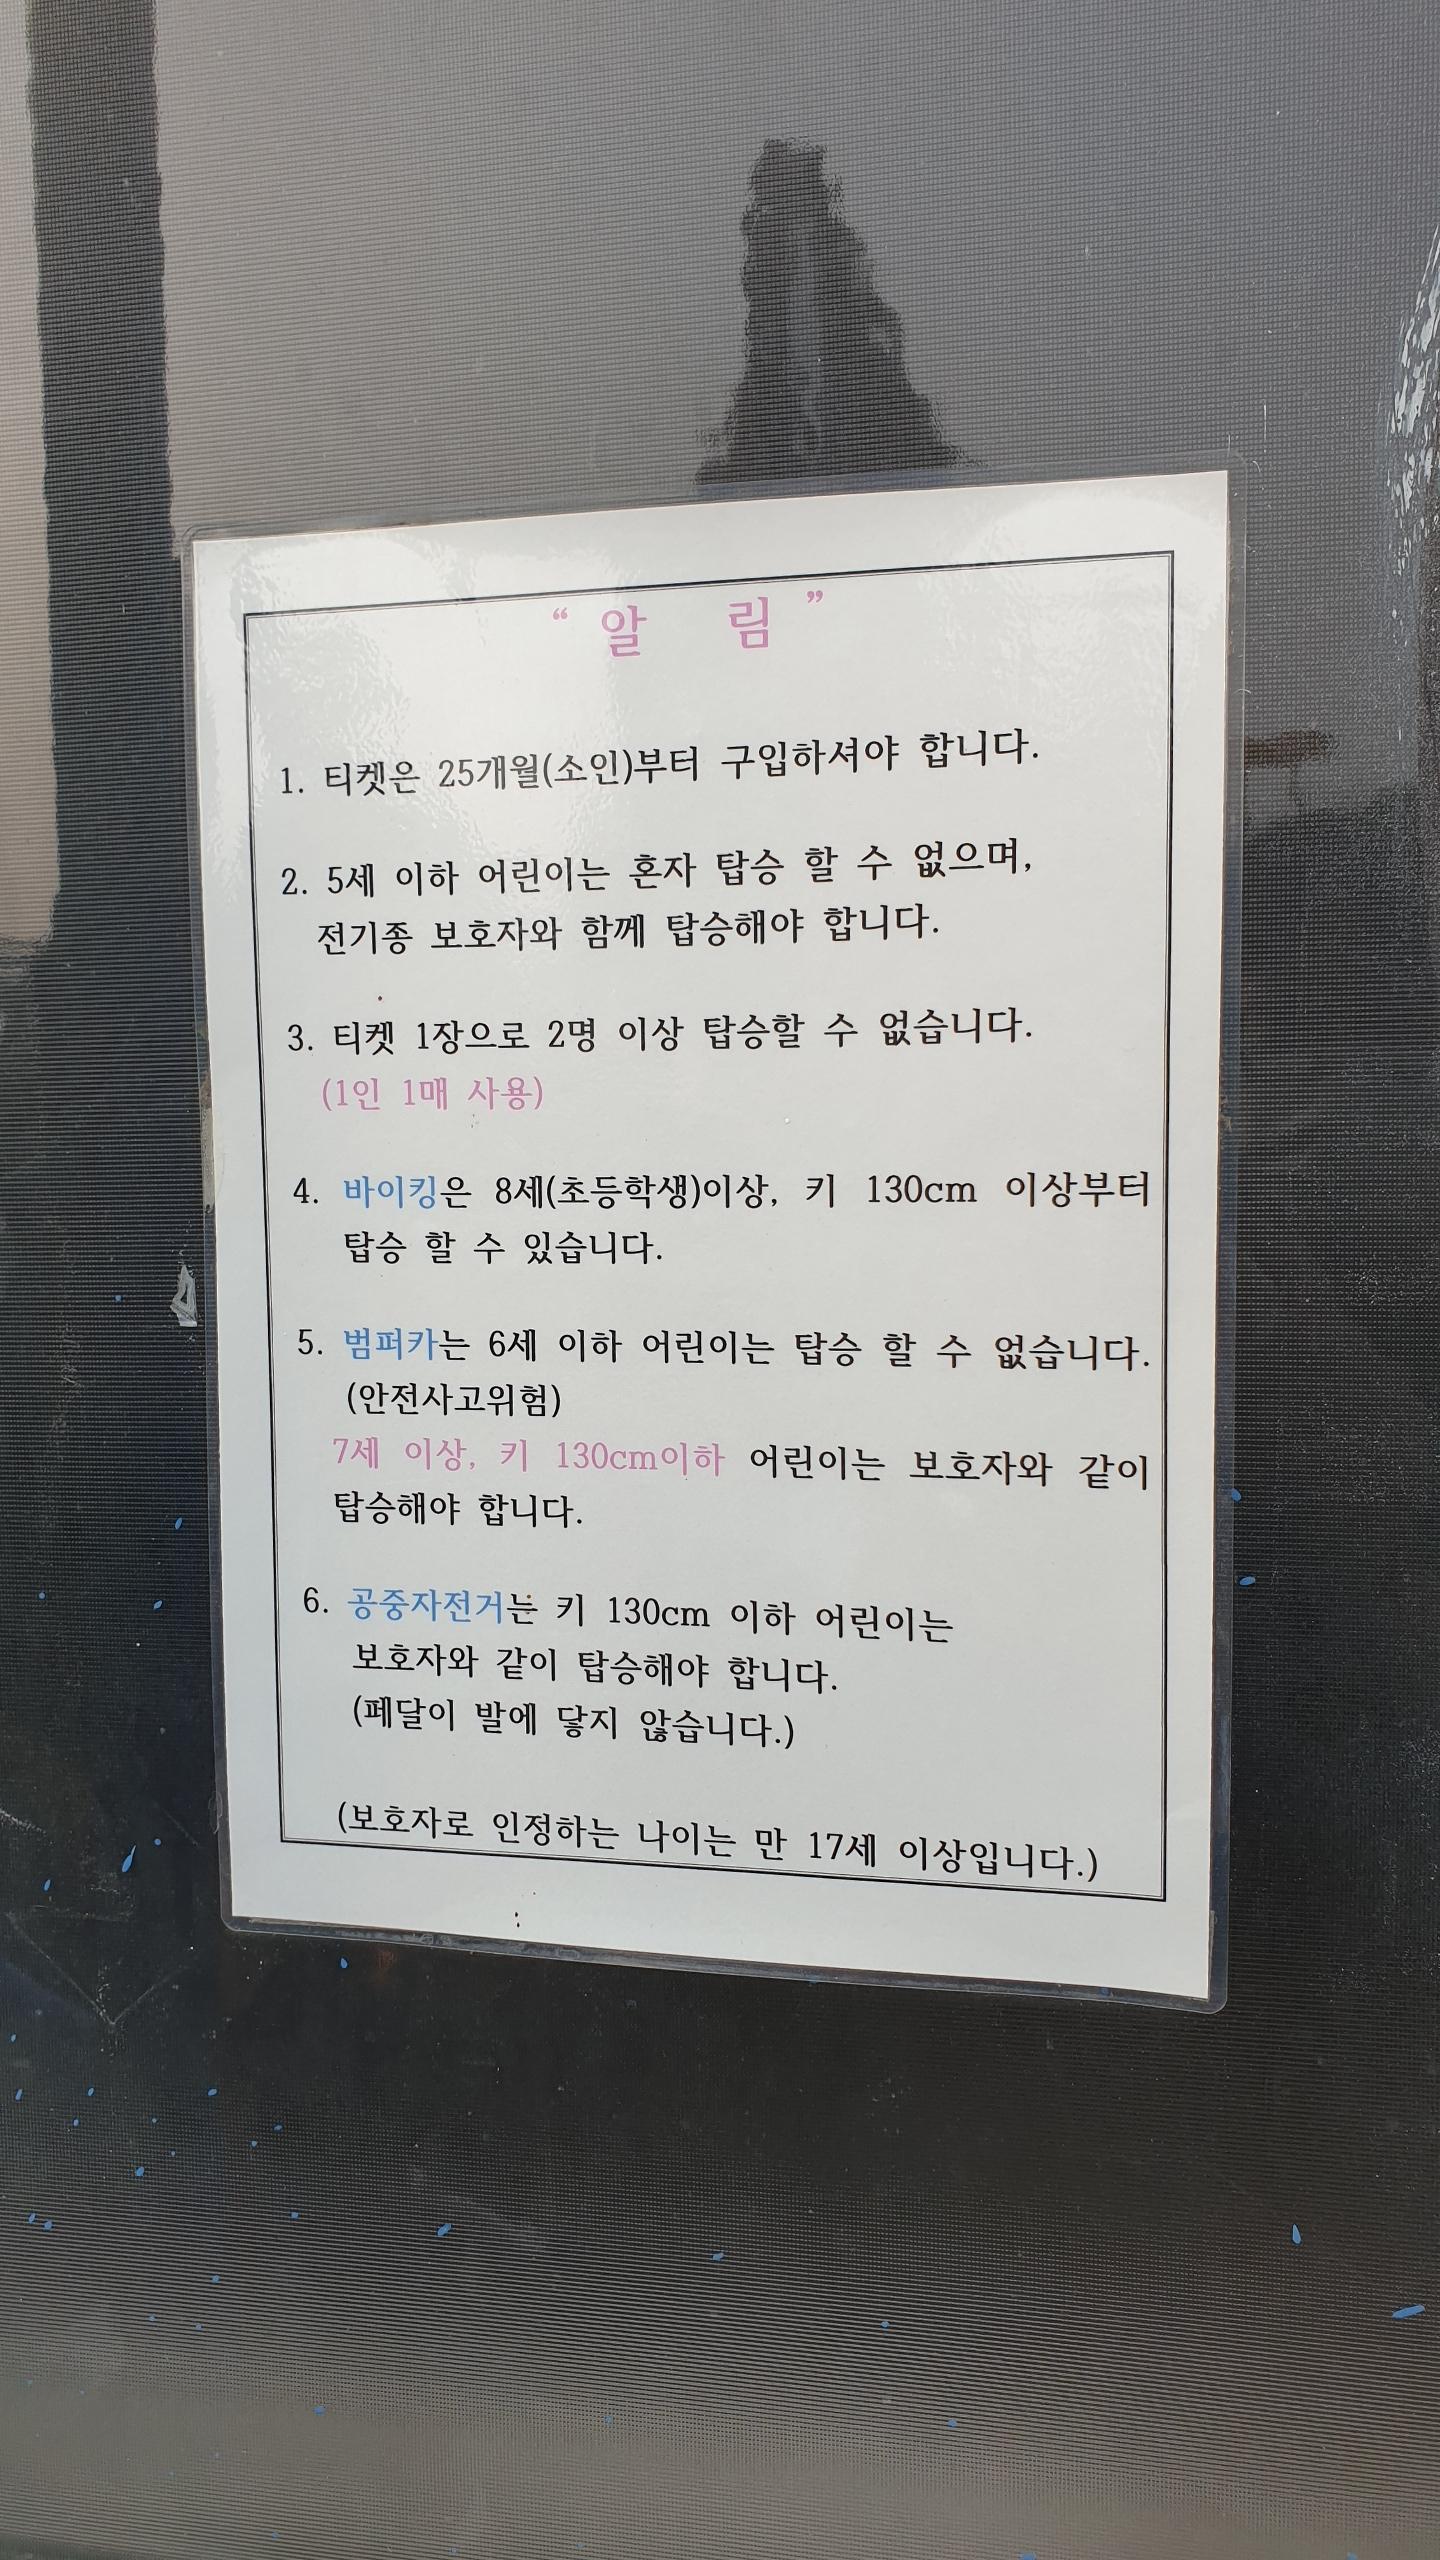 “ 알 림 ”
1. 티켓은 25개월(소인)부터 구입하셔야 합니다.
2. 5세 이하 어린이는 혼자 탑승 할 수 없으며,
전기종 보호자와 함께 탑승해야 합니다.
3. 티켓 1장으로 2명 이상 탑승할 수 없습니다.
(1인 1매 사용)
4. 바이킹은 8세(초등학생)이상, 키 130cm 이상부터
탑승 할 수 있습니다.
5. 범퍼카는 6세 이하 어린이는 탑승 할 수 없습니다.
(안전사고위험)
7세 이상, 키 130cm이하 어린이는 보호자와 같이
탑승해야 합니다.
6. 공중자전거는 키 130cm 이하 어린이는
보호자와 같이 탑승해야 합니다.
(페달이 발에 닿지 않습니다.)
(보호자로 인정하는 나이는 만 17세 이상입니다.)